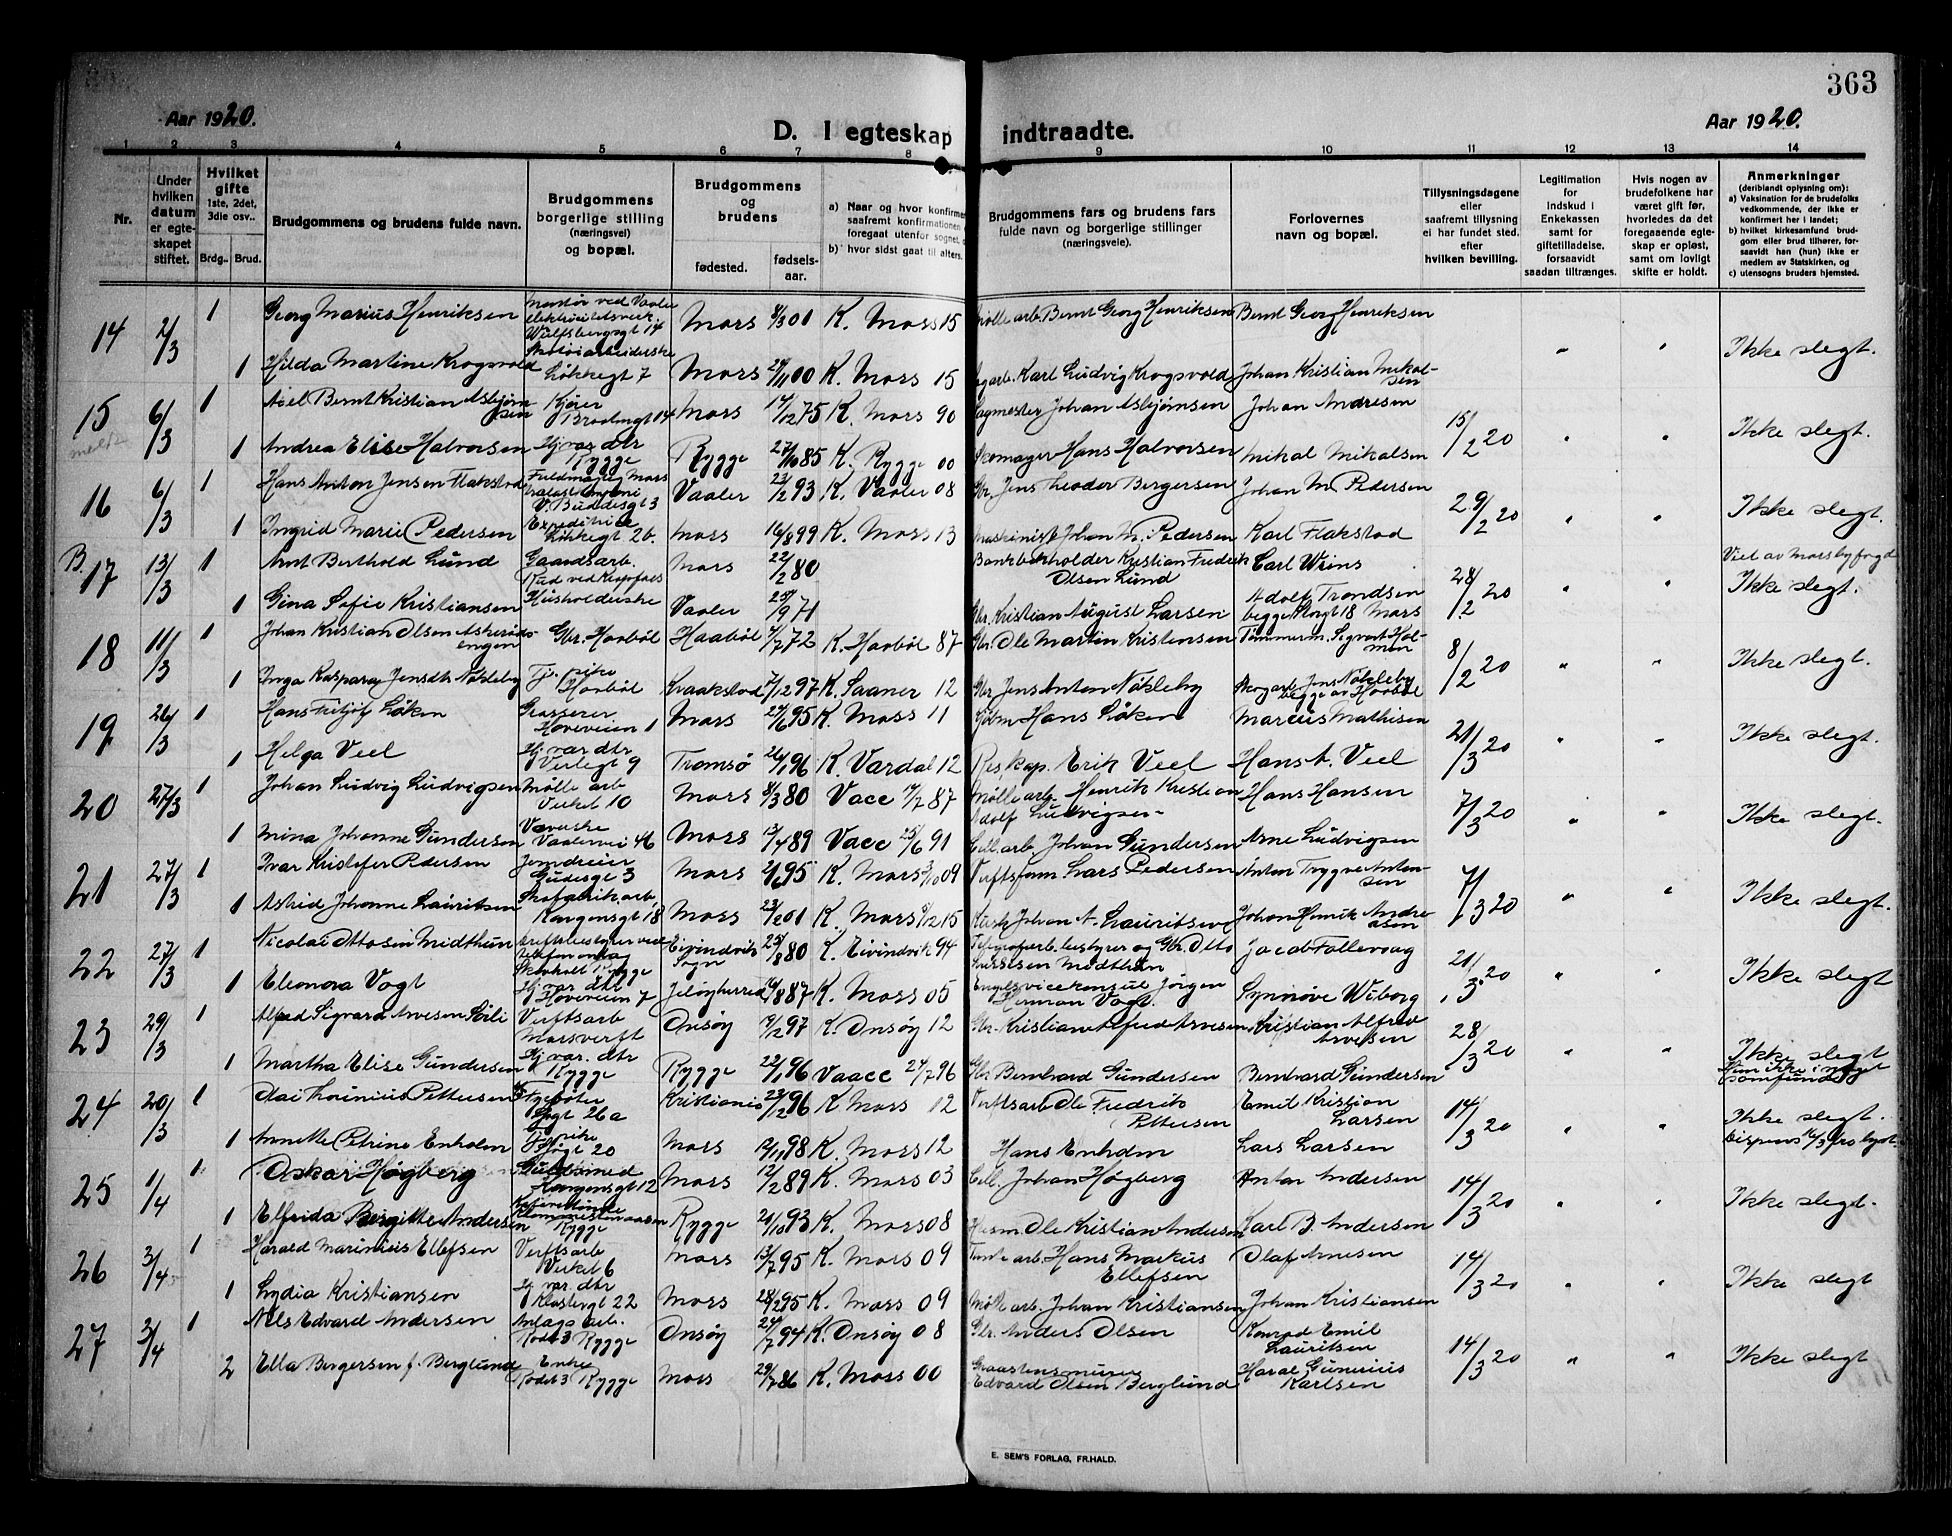 363
Aar 1920.
D. I egteskap indtraadte.
Aar 1920.
1 2 3 4 5 6 7 8 9 10 11 12 13 14
Nr.
Under hvilken datum er egteskapet stiftet.
Hvilket gifte 1ste, 2det, 3die osv..
Brdg. Brud.
Brudgommens og brudens fulde navn.
Brudgommens borgerlige stilling (næringsvei) og bopæl.
Brudgommens og brudens
fødested.
fødselsaar.
a) Naar og hvor konfirmert, saafremt konfirmationen foregaat utenfor sognet,
b) hvor sidst gaat til alters.
Brudgommens fars og brudens fars fulde navn og borgerlige stillinger (næringsveie).
Forlovernes navn og bopæl.
Tillysningsdagene eller saafremt tillysning ei har fundet sted. efter hvilken bevilling.
Legitimation for Indskud i Enkekassen samt for giftetilladelse, forsaavidt saadan tiltrænges.
Hvis nogen av brudefolkene har været gift før, hvorledes da det foregaaende egteskap er opløst, samt om lovligt skifte er holdt.
Anmerkninger (deriblandt oplysning om):
a) Vaksination for de brudefolks vedkommende, der ikke er konfirmert her i landet;
b) hvilket kirkesamfund brudgom eller brud tilhører, forsaavidt han (hun) ikke er medlem av Statskirken, og
c) utensogns bruders hjemsted.
14 2/3 1 Georg Marius Henriksen Montør ved Vaaler elektricitetsverk. Wulfsbergsgt 14 Moss 8/3 01 K. Moss 15 Mølle arb. Bernt Georg Henriksen Bernt Georg Henriksen
1 Hilda Martine Krogsvold Skotøiarbeiderske Løkkegt 7 Moss 29/11 00 K. Moss 15 Karl Ludvig Krogsvold Johan Kristian Mikalsen " " Ikke slegt.
15 6/3 1 Axel Bernt Kristian Asbjørnsen Kjører 14 Moss 14/12 75 K. Moss 90 Sagmester Johan Asbjørnsen Johan Andresen
meldt
1 Andrea Elise Halvorsen Hj. vær. dtr Rygge Rygge 27/10 85 K. Rygge 00 Skomager Hans Halvorsen Mikal Mikalsen 15/2 20 " " Ikke slegt.
16 6/3 1 Hans Anton Jensen Flakstad V. Bundesgt 3 Vaaler 23/2 93 K. Vaaler 08 Gbr. Jens Teodor Bergersen Johan M. Pedersen
1 Ingrid Marie Pedersen Expeditrice Løkkegt 26. Moss 16/8 99 K. Moss 13 Maskinist Johan M. Pedersen Karl Flakstad 29/2 20 " " Ikke slegt.
B. 17 13/3 1 Arnt Berthold Lund Gaardsarb. Moss 22/2 80 Bankbokholder Kristian Fredrik Olsen Lund Carl Wiens Viet av Moss byfogd
1 Gina Sofie Kristiansen Husholderske Vaaler 25/9 71 Gbr. Kristian August Larsen Adolf Trondsen begge Storgt 18 Moss 28/2 20 " " Ikke slegt.
18 11/3 1 Johan Kristian Olsen Askerødsengen Gbr. Haabøl Haabøl 4/7 72 K. Haabøl 87 Gbr. Ole Martin Kristensen Tømmerm. Sigvart Holmen
1 Inga Kaspara Jensdtr Nøkleby Tj. pike Haabøl Kraakstad 7/12 97 K. Saaner 12 Gbr Jens Anton Nøkleby Skogarb. Jens Nøkleby begge av Haabøl 8/2 20 " " Ikke slegt.
19 26/3 1 Hans Fritjof Løken Grosserer Høveveien 1 Moss 27/6 95 K. Moss 11 Kjøbm Hans Løken Marcus Mathisen
1 Helga Veel Hj. vær dtr Verlegt 9 Tromsø 26/1 96 K. Vardal 12 Res. kap. Erik Veel Hans A. Veel 21/3 20 " " Ikke slegt.
20 27/3 1 Johan Ludvig Ludvigsen Mølle arb Verket 10 Moss 8/3 80 Vacc 17/7 87 Mølle arb. Henrik Kristian Adolf Ludvigsen Hans Hansen
1 Mina Johanne Gundersen Væverske Vaalervei 46 Moss 13/4 89 Vacc 25/6 91 Cell. arb. Johan Gundersen Arne Ludvigsen 7/3 20 " " Ikke slegt.
21 27/3 1 Ivar Kristofer Pedersen Jerndreier Gudesgt 3 Moss 95 K. Moss 3/10 09 Verftsform Lars Pedersen Anton Trygve Antonsen
1 Astrid Johanne Lauritsen Skofabrik. arb, Kongensgt 18 Moss 23/2 01 K. Moss 5/12 15 Kusk Johan A. Lauritsen Johan Henrik Andreasen 7/3 20 " " Ikke slegt.
22 27/3 1 Nicolai Ottosen Midthun Driftsbestyrer ved telefonanlæg Rygge Eivindvik Sogn 25/8 80 K. Eivindvik 94 Telegrafarb. bestyrer og Gbr. Otto Midthun Jacob Follevaag
1 Eleonora Vogt Hj. vær dtr Høveveien 7 Jeløy herred 16/8 87 K. Moss 05 Engelsk vicekonsul Jørgen Herman Vogt. Synnøve Wiborg 21/3 20 " " Ikke slegt
23 29/3 1 Alfred Sigvard Arvesen Soli Verftsarb Mossverft Onsøy 19/2 97 K. Onsøy 12 Gbr. Kristian Alfred Arvesen Kristian Alfred Arvesen
1 Martha Elise Gundersen Hj vær. dtr Rygge Rygge 22/1 96 Vaacc 27/7 96 Gbr Bernhard Gundersen Bernhard Gundersen 28/3 20 " " Ikke slegt Hun ikke i noget samfund
24 20/3 1 Olai Thorinius Pettersen Fyrbøter 26a Kristiania 23/12 96 K Moss 12 Verftsarb Ole Fredrik Pettersen Emil Kristian Larsen
1 Annette Petrine Enholm Tj. pike 20 Moss 12/11 98 K. Moss 12 Hans Enholm Lars Larsen 14/3 20 " " Ikke slegt.
25 1/4 1 Oskar Høgberg Guldsmed Kongensgt 12 Moss 12/2 89 K. Moss 03 Cell. Johan Høgberg Anton Andersen
1 Elfrida Birgitte Andersen Rygge Rygge 20/10 93 K. Moss 08 Husm. Ole Kristian Andersen Karl B. Andersen 14/3 20 " " Ikke slegt.
26 3/4 1 Harald Marinius Ellefsen Verftsarb Verket 6 Moss 13/7 95 K. Moss 09 Tomte arb. Hans Markus Ellefsen Olaf Arnesen
1 Lydia Kristiansen Hj. vær. dtr Klostergt 22 Moss 28/2 95 K. Moss 09 Mølle arb. Johan Kristiansen Johan Kristiansen 14/3 20 " " Ikke slegt
27 3/4 1 Nils Edvard Andersen Anlægs arb. Rygge Onsøy 24/7 94 K. Onsøy 08 Gbr. Anders Olsen Konrad Emil Lauritsen
2 Ella Bergersen f. Berglund Enke Rygge Moss 29/7 86 K. Moss 00 Graastensmurer Edvard Olsen Berglund Haral Gunerius Karlsen 14/3 20 " " Ikke slegt
E. SEM'S FORLAG, FR.HALD.